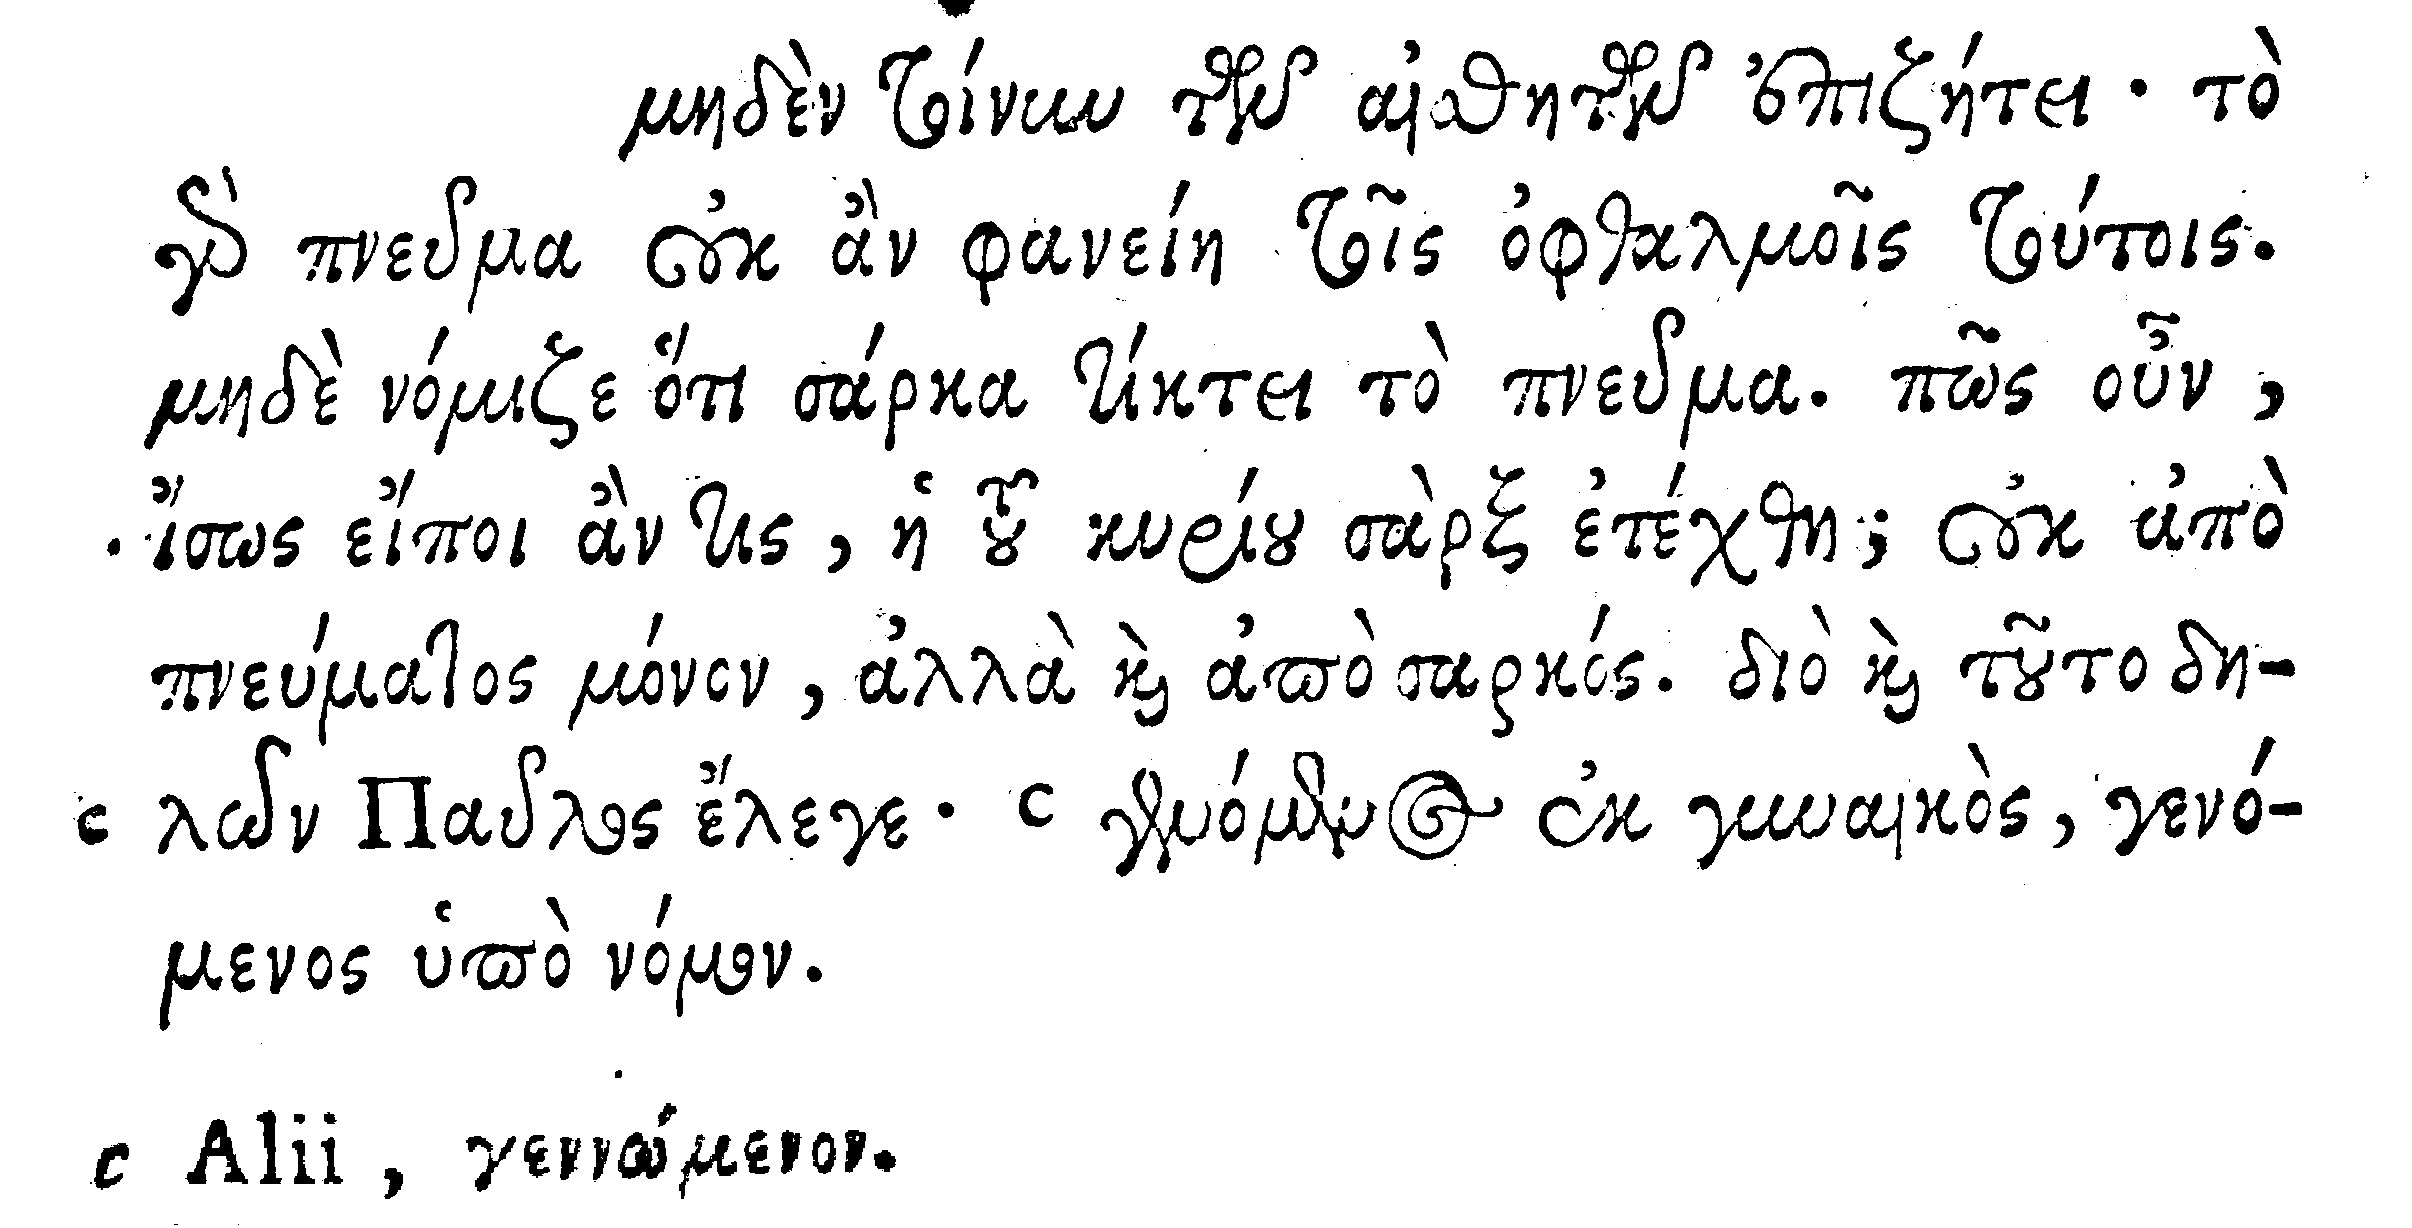 μηδὲν τοίνυν τῶν αἰσθητῶν ἐπιζήτει· τὸ
γὰρ πνεῦμα οὐκ ἂν φανείη τοῖς ὀφθαλμοῖς τούτοις.
μηδὲ νόμιζε ὅτι σάρκα τίκτει τὸ πνεῦμα. πῶς οὖν,
ἴσως εἴποι ἄν τις, ἡ τοῦ κυρίου σὰρξ ἐτέχθη; οὐκ ἀπὸ
πνεύματος μόνον, ἀλλὰ καὶ ἀπὸ σαρκός. διὸ καὶ τοῦτο δη-
c λῶν Παῦλος ἔλεγε· c γενόμενος ἐκ γυναικὸς, γενό-
μενος ὑπὸ νόμον.
c Alii, γεννώμενον.